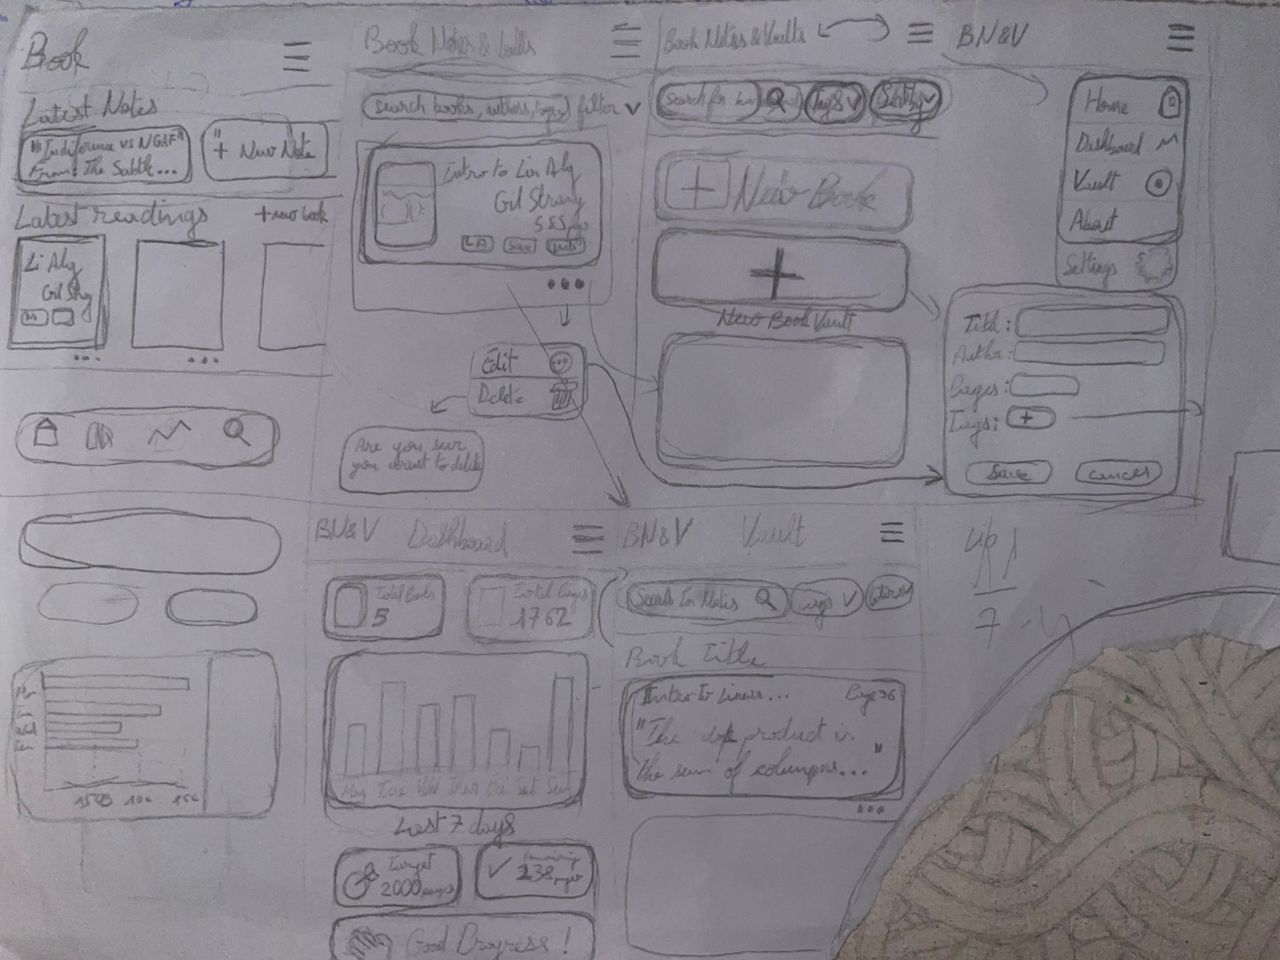 Book
Latest Notes
"Indiference vs NGAF"
From: The Subtle...
"
+ New Note
Latest readings
+ new book
Li Alg
Gil Strg
Book Notes & Vaults
search books, authors, tags,
filter
Intro to Lin Alg
Gil Strang
585 pgs
LA
Save
Edit
Delete
Are you sur
you want to delete
Book Notes & Vaults
Search for
tags
Sort by
+ New Book
+
New Book Vault
BN&V
Home
Dashboard
Vault
About
Settings
Title:
Author:
Pages:
Tags: +
Save
cancel
BN&V Dashboard
Total Books
5
Total Pages
1762
Mon Tue Wed Thur Fri Sat Sun
Last 7 days
Target
2000 pages
Remaining
238 pages
Good Progress!
BN&V Vault
Search for Notes
tags
Book Title
Intro to Linear... Page 36
"The dot product is
the sum of columns... "